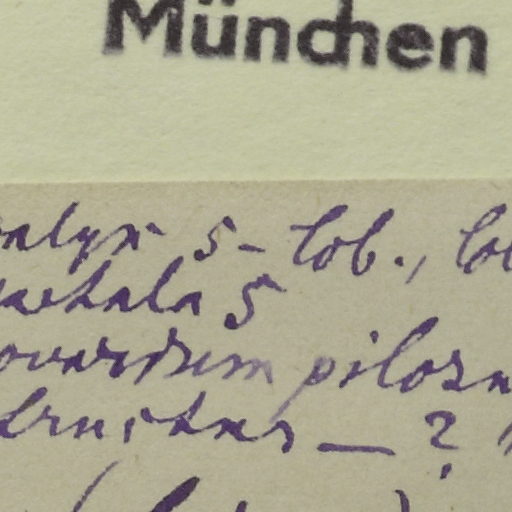 München
calyx 5-lob., lob
petala 5
ovarium pilosu
fructus — ?